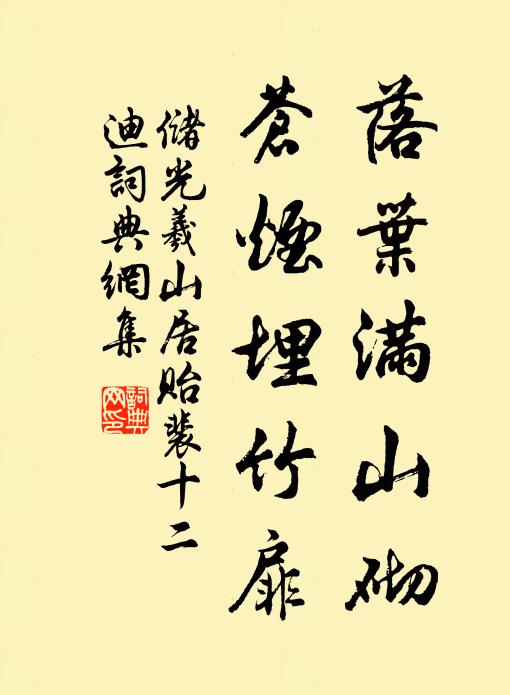 落葉滿山砌
蒼煙埋竹扉
儲光羲山居貽裴十二
迪詞典網集
詞典
网印